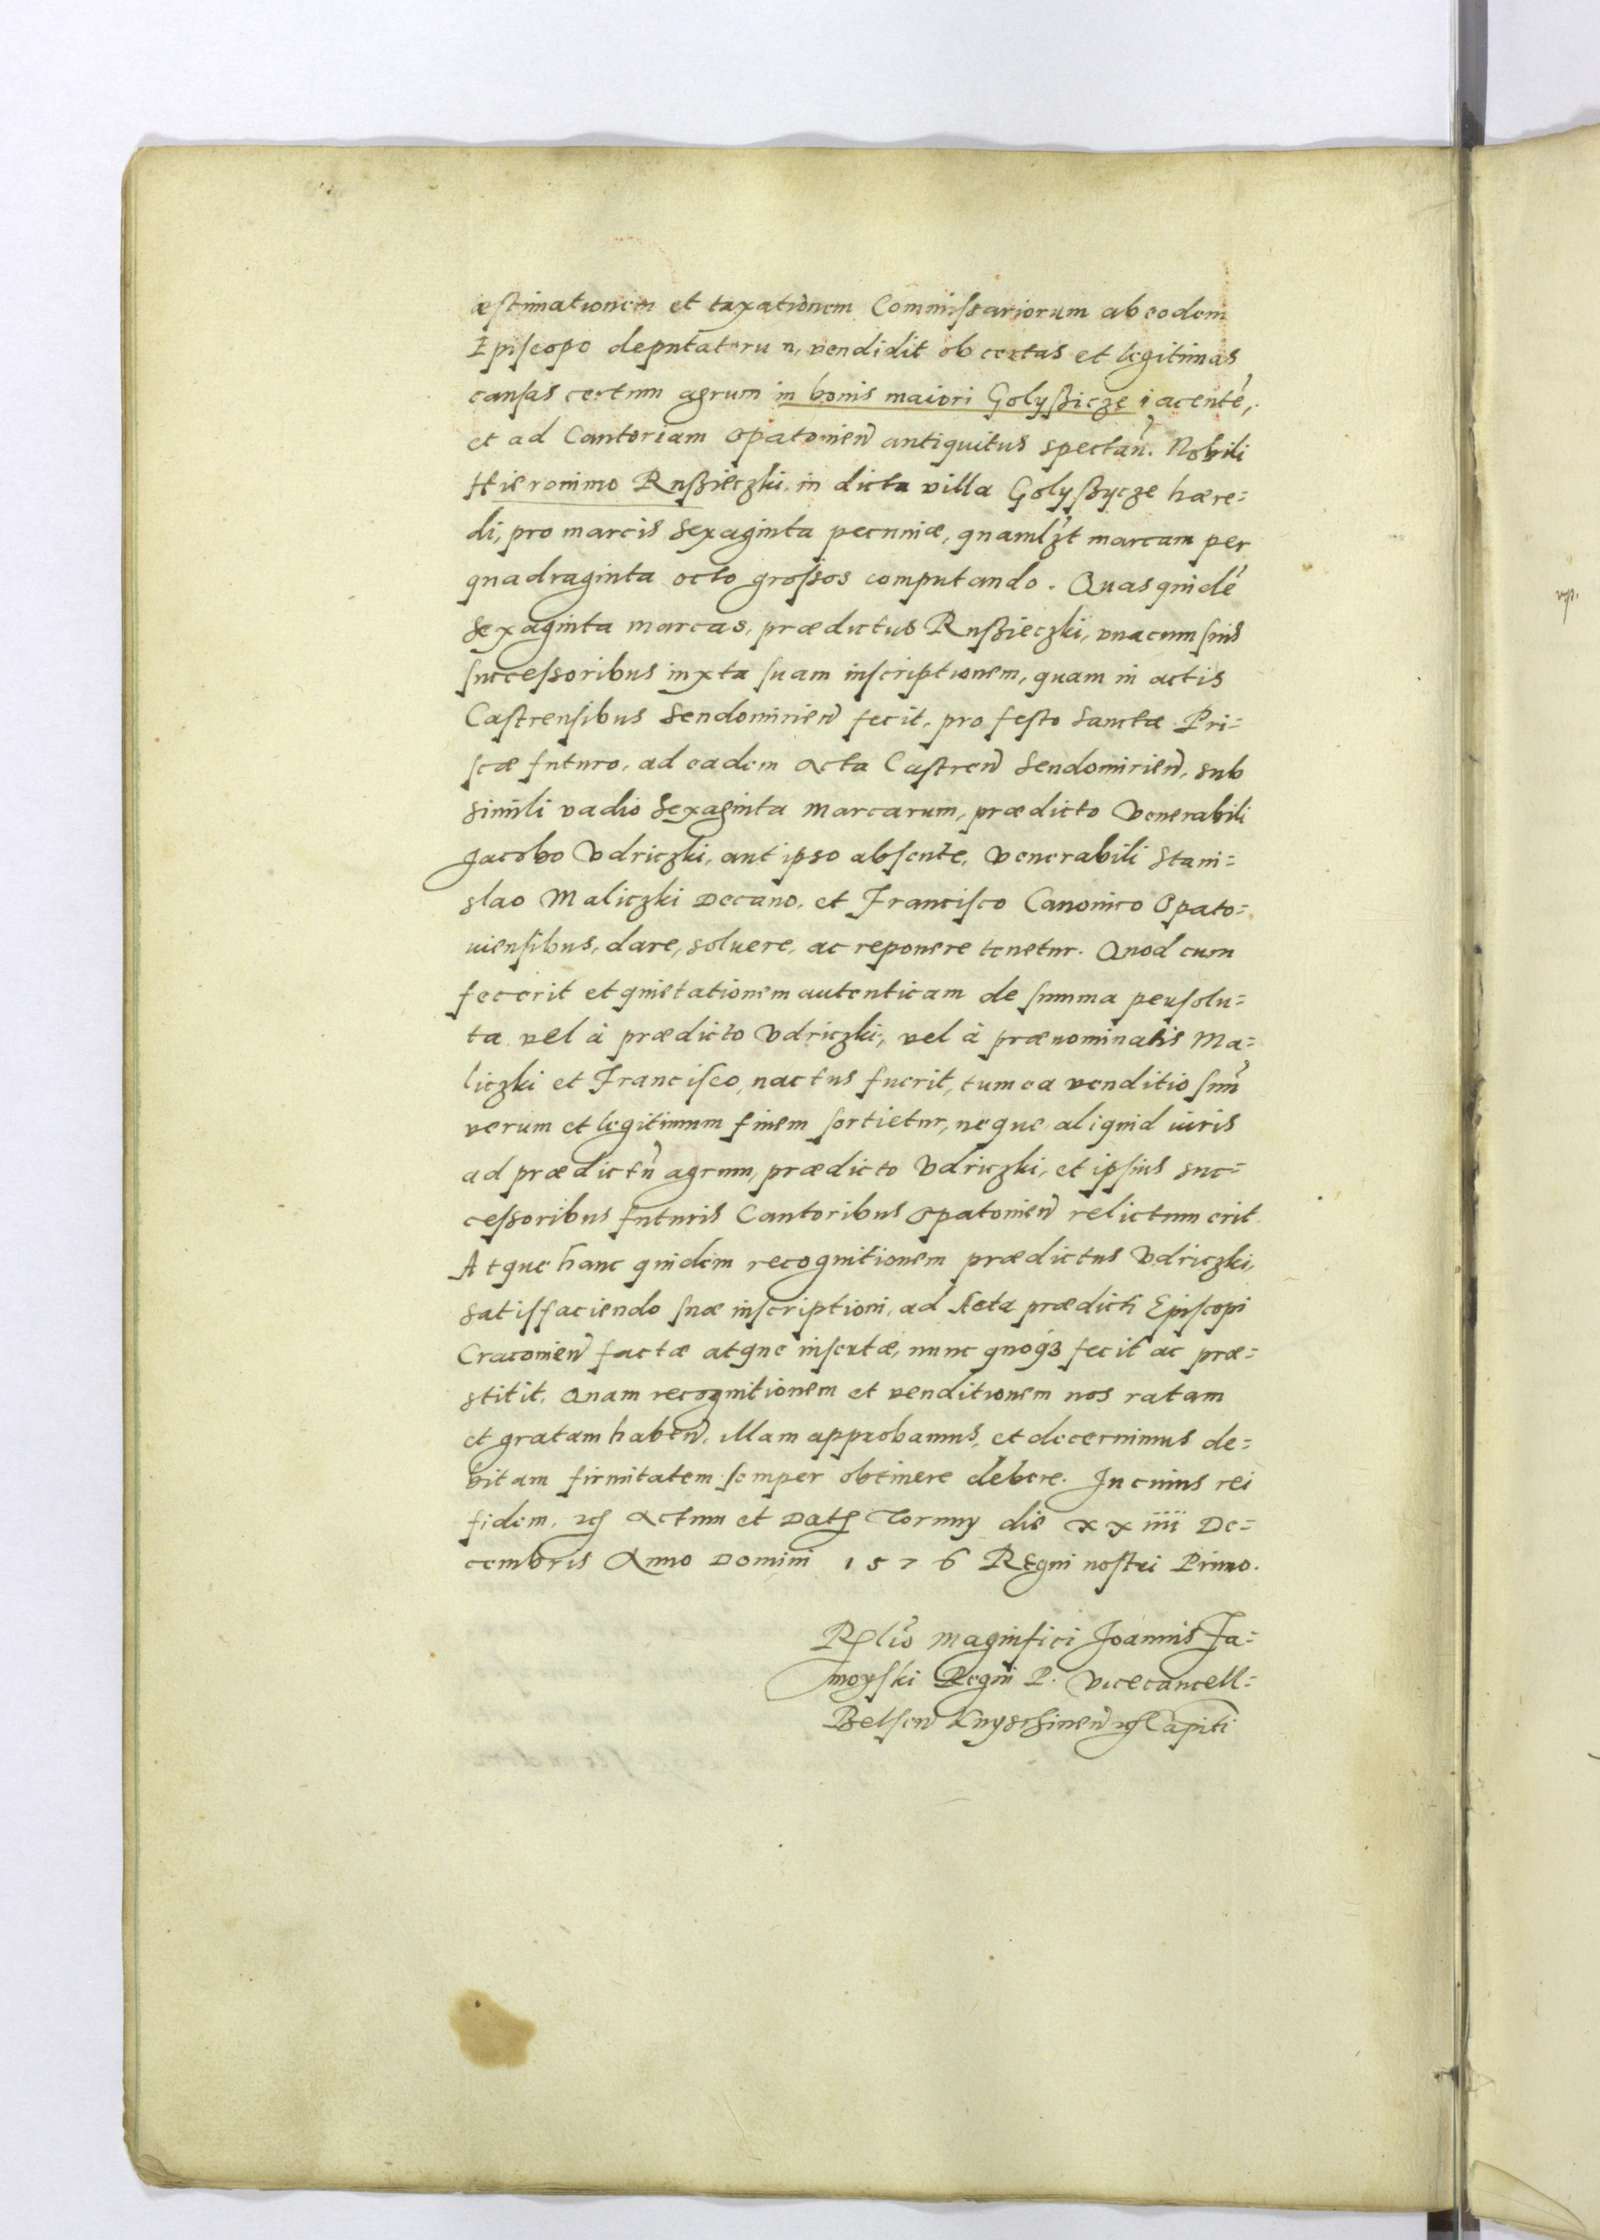 æstimationem et taxationem Commissariorum ab eodem
Episcopo deputatorum, vendidit ob certas et legitimas
causas certum agrum in bonis maiori Golyßicze iacentē,
et ad Cantoriam Opatouien̄ antiquitus spectan̄. Nobili
Hieronimo Rußieczki, in dicta villa Golyßycze hære=
di, pro marcis sexaginta pecuniæ, quamlꝫt marcam per
quadraginta octo grossos computando. Quas quidē
sexaginta marcas, prædictus Rußieczki, vnacum suis
successoribus iuxta suam inscriptionem, quam in actis
Castrensibus Sendomirien̄ fecit, pro festo Sanctæ Pri=
scæ futuro, ad eadem Acta Castren̄ Sendomirien̄, sub
simili vadio sexaginta marcarum, prædicto Venerabili
Jacobo Vdriczki, aut ipso absente, Venerabili Stani=
slao Maliczki Decano, et Francisco Canonico Opato=
uiensibus, dare, soluere, ac reponere tenetur. Quod cum
fecerit et quietationem autenticam de summa persolu=
ta vel à prædicto Vdriczki, vel à prænominatis Ma=
liczki et Francisco, nactus fuerit, tum ea venditio suū
verum et legitimum finem sortietur, neque aliquid iuris
ad prædictū agrum, prædicto Vdriczki, et ipsius suc=
cessoribus futuris Cantoribus Opatouien̄ relictum erit.
Atque hanc quidem recognitionem prædictus Vdriczki,
satisfaciendo suæ inscriptioni, ad Acta prædicti Episcopi
Cracouien̄ factæ atque insertæ, nunc quoqꝫ fecit ac præ=
stitit. Quam recognitionem et venditionem nos ratam
et gratam haben̄, illam approbamus, et decernimus de=
bitam firmitatem semper obtinere debere. In cuius rei
fidem, Actum et Dat Toruny die xxiiii De=
cembris Anno Domini 1576 Regni nostri Primo.
Rłio Magnifici Joannis Za=
moyski Regni P. Vicecancell=
Belsen̄ Knyschinen̄ Capiti